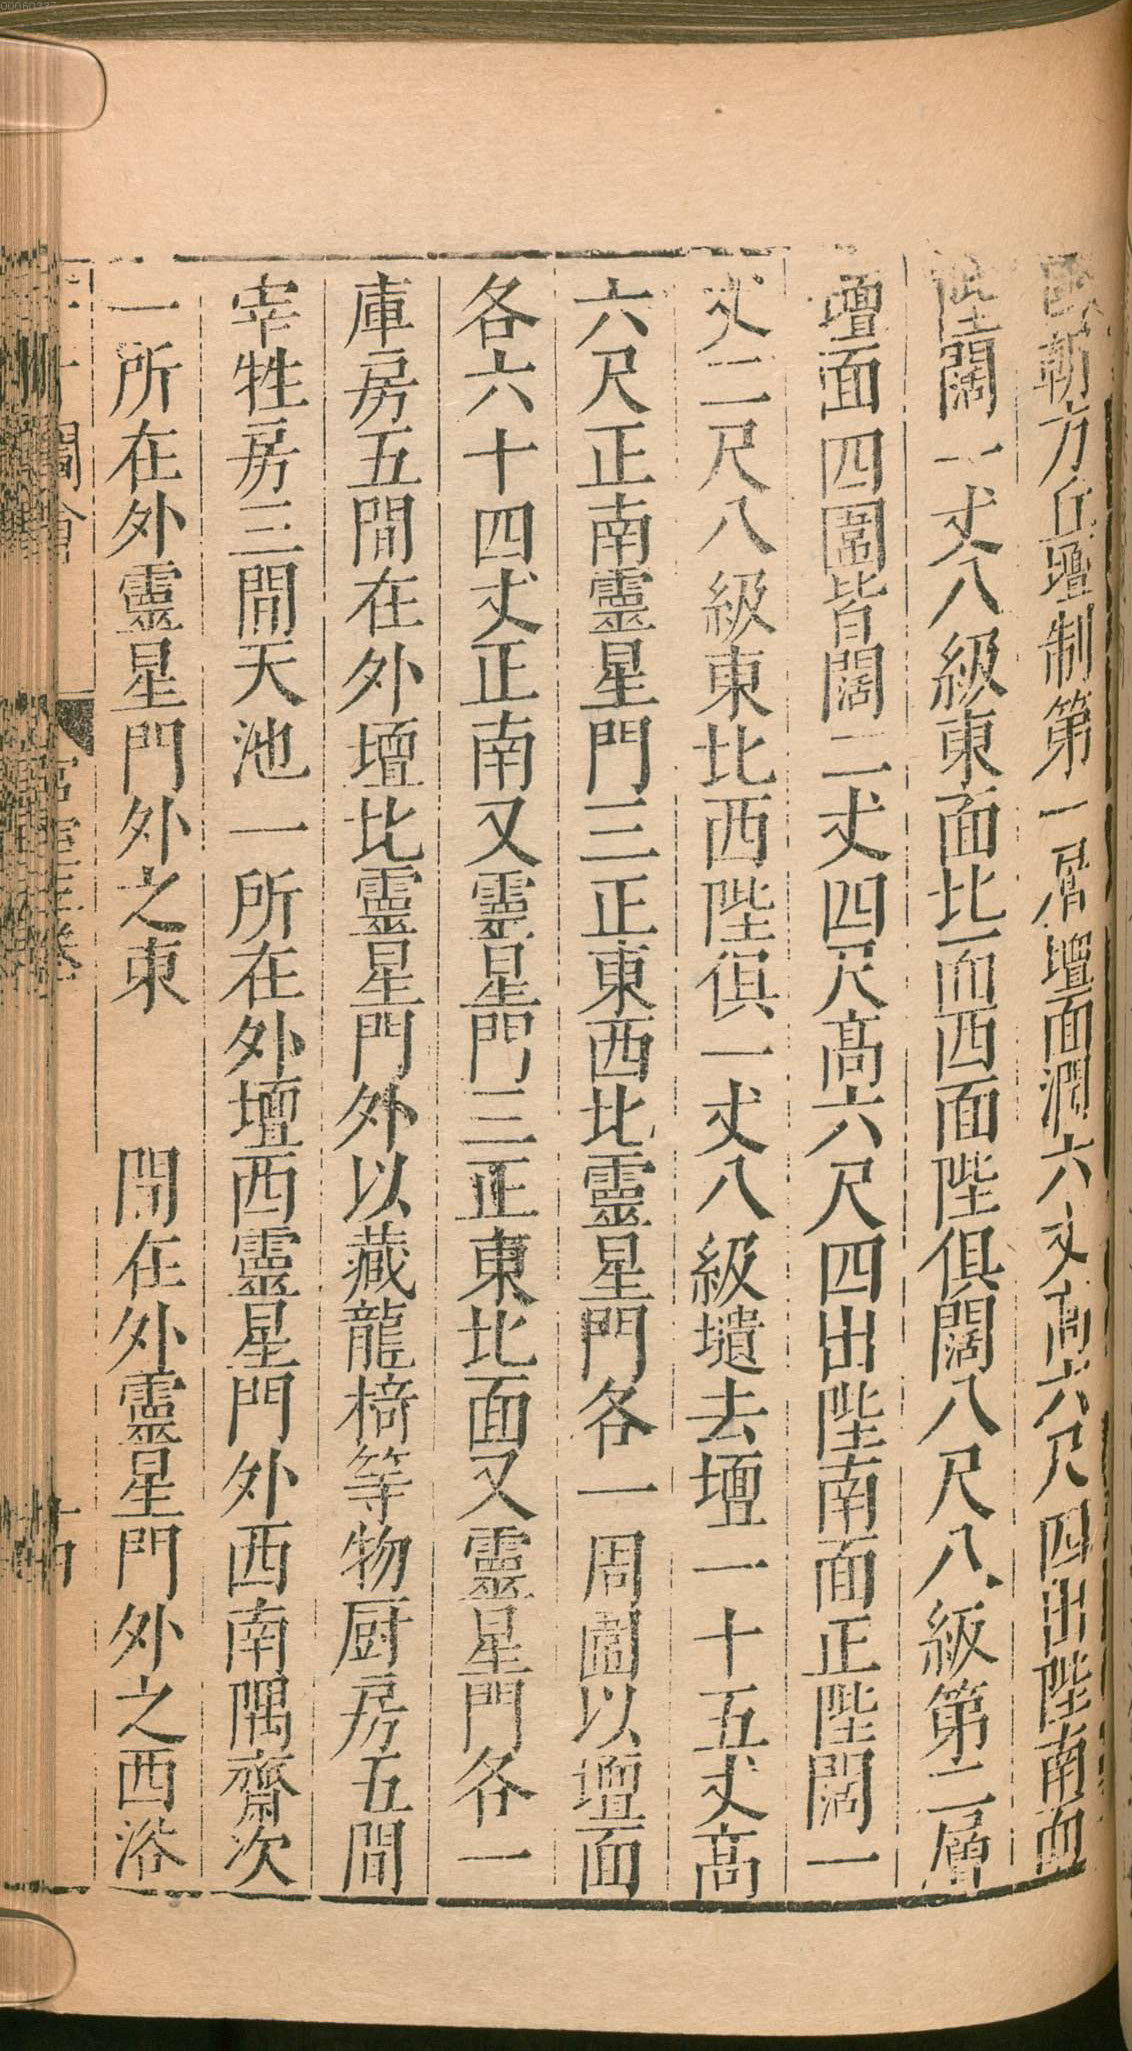 國朝方丘壇制第一層壇面濶六丈高六尺四出陛南面
陛闊一丈八級東面北面西面陛俱闊八尺八級第二層
壇面四圍皆闊二丈四尺高六尺四出陛南面正陛闊一
丈二尺八級東北西陛俱一丈八級壝去壇一十五丈高
六尺正南靈星門三正東西北靈星門各一周圍以壇面
各六十四丈正南又靈星門三正東北面又靈星門各一
庫房五間在外壇北靈星門外以藏龍椅等物厨房五間
宰牲房三間天池一所在外壇西靈星門外西南隅齋次
一所在外靈星門外之東　間在外靈星門外之西浴
三才圖會
宮室三卷
00060337